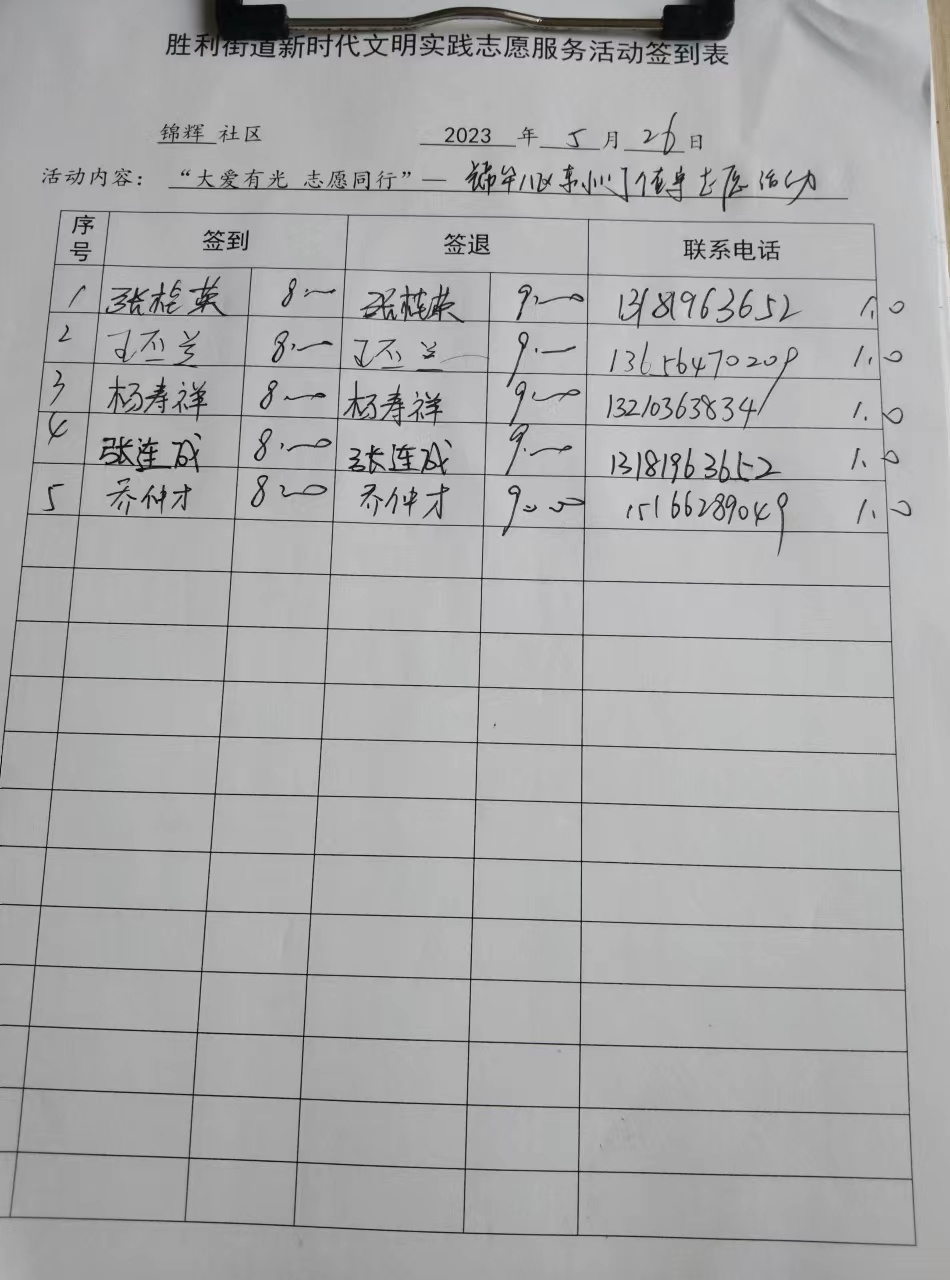 胜利街道新时代文明实践志愿服务活动签到表
锦辉 社区 2023 年 5 月 26 日
活动内容: “大爱有光 志愿同行”— 志愿活动
序号 签到 签退 联系电话
1 张桂英 8:00 张桂英 9:00 13181963652 1.0
2 王丕兰 8:00 王丕兰 9:00 13656470209 1.0
3 杨寿祥 8:00 杨寿祥 9:00 13210363834 1.0
4 张连成 8:00 张连成 9:00 13181963652 1.0
5 乔仲才 8:00 乔仲才 9:00 15166289049 1.0